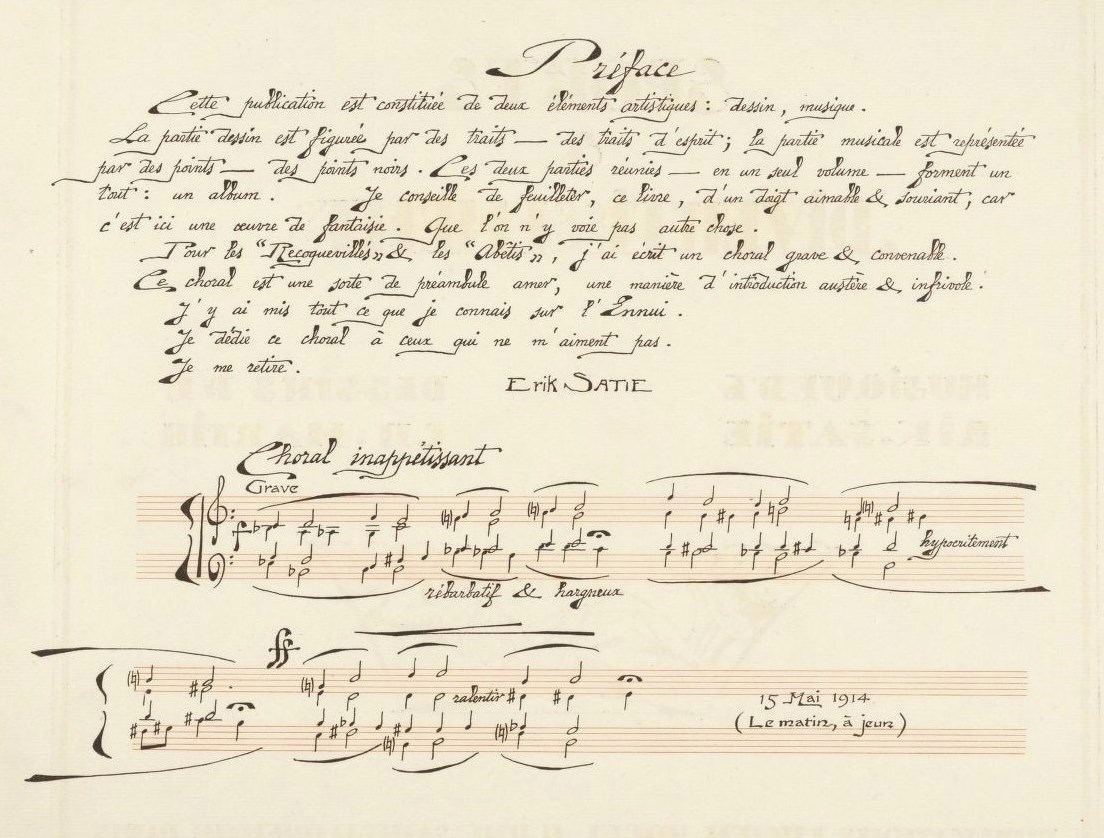 Préface
Cette publication est constituée de deux éléments artistiques : dessin, musique.
La partie dessin est figurée par des traits — des traits d'esprit; la partie musicale est représentée
par des points — des points noirs. Ces deux parties réunies — en un seul volume — forment un
tout : un album. Je conseille de feuilleter, ce livre, d'un doigt aimable & souriant; car
c'est ici une œuvre de fantaisie. Que l'on n'y voie pas autre chose.
Pour les "Recoquevillés" & les "Abêtis", j'ai écrit un choral grave & convenable.
Ce choral est une sorte de préambule amer, une manière d'introduction austère & infrivole.
J'y ai mis tout ce que je connais sur l'Ennui.
Je dédie ce choral à ceux qui ne m'aiment pas.
Je me retire.
Erik SATIE
Choral inappétissant
Grave
f
hypocritement
rébarbatif & hargneux
ff
ralentir
15 Mai 1914
(Le matin, à jeun)